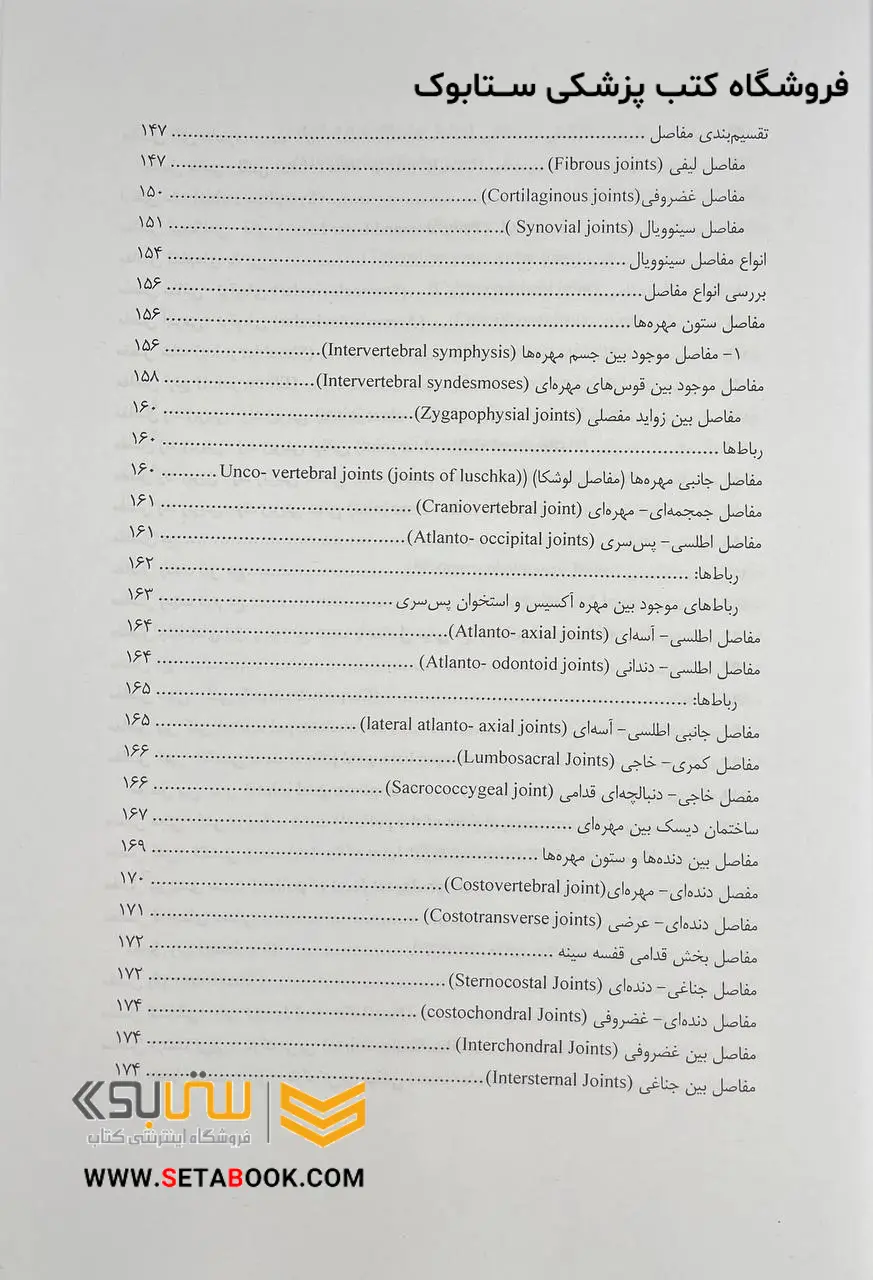 فروشگاه کتب پزشکی ستابوک
تقسیم‌بندی مفاصل ........ ۱۴۷
مفاصل لیفی (Fibrous joints) ........ ۱۴۷
مفاصل غضروفی(Cortilaginous joints) ........ ۱۵۰
مفاصل سینوویال (Synovial joints ) ........ ۱۵۱
انواع مفاصل سینوویال ........ ۱۵۴
بررسی انواع مفاصل ........ ۱۵۶
مفاصل ستون مهره‌ها ........ ۱۵۶
۱- مفاصل موجود بین جسم مهره‌ها (Intervertebral symphysis) ........ ۱۵۶
مفاصل موجود بین قوس‌های مهره‌ای (Intervertebral syndesmoses) ........ ۱۵۸
مفاصل بین زواید مفصلی (Zygapophysial joints) ........ ۱۶۰
رباط‌ها ........ ۱۶۰
مفاصل جانبی مهره‌ها (مفاصل لوشکا) (Unco- vertebral joints (joints of luschka)) ........ ۱۶۰
مفاصل جمجمه‌ای- مهره‌ای (Craniovertebral joint) ........ ۱۶۱
مفاصل اطلسی- پس‌سری (Atlanto- occipital joints) ........ ۱۶۱
رباط‌ها: ........ ۱۶۲
رباط‌های موجود بین مهره آکسیس و استخوان پس‌سری ........ ۱۶۳
مفاصل اطلسی- آسه‌ای (Atlanto- axial joints) ........ ۱۶۴
مفاصل اطلسی- دندانی (Atlanto- odontoid joints) ........ ۱۶۴
رباط‌ها: ........ ۱۶۵
مفاصل جانبی اطلسی- آسه‌ای (lateral atlanto- axial joints) ........ ۱۶۵
مفاصل کمری- خاجی (Lumbosacral Joints) ........ ۱۶۶
مفصل خاجی- دنبالچه‌ای قدامی (Sacrococcygeal joint) ........ ۱۶۶
ساختمان دیسک بین مهره‌ای ........ ۱۶۷
مفاصل بین دنده‌ها و ستون مهره‌ها ........ ۱۶۹
مفصل دنده‌ای- مهره‌ای(Costovertebral joint) ........ ۱۷۰
مفاصل دنده‌ای- عرضی (Costotransverse joints) ........ ۱۷۱
مفاصل بخش قدامی قفسه سینه ........ ۱۷۲
مفاصل جناغی- دنده‌ای (Sternocostal Joints) ........ ۱۷۲
مفاصل دنده‌ای- غضروفی (costochondral Joints) ........ ۱۷۴
مفاصل بین غضروفی (Interchondral Joints) ........ ۱۷۴
مفاصل بین جناغی (Intersternal Joints) ........ ۱۷۴
ستابوک
فروشگاه اینترنتی کتاب
WWW.SETABOOK.COM